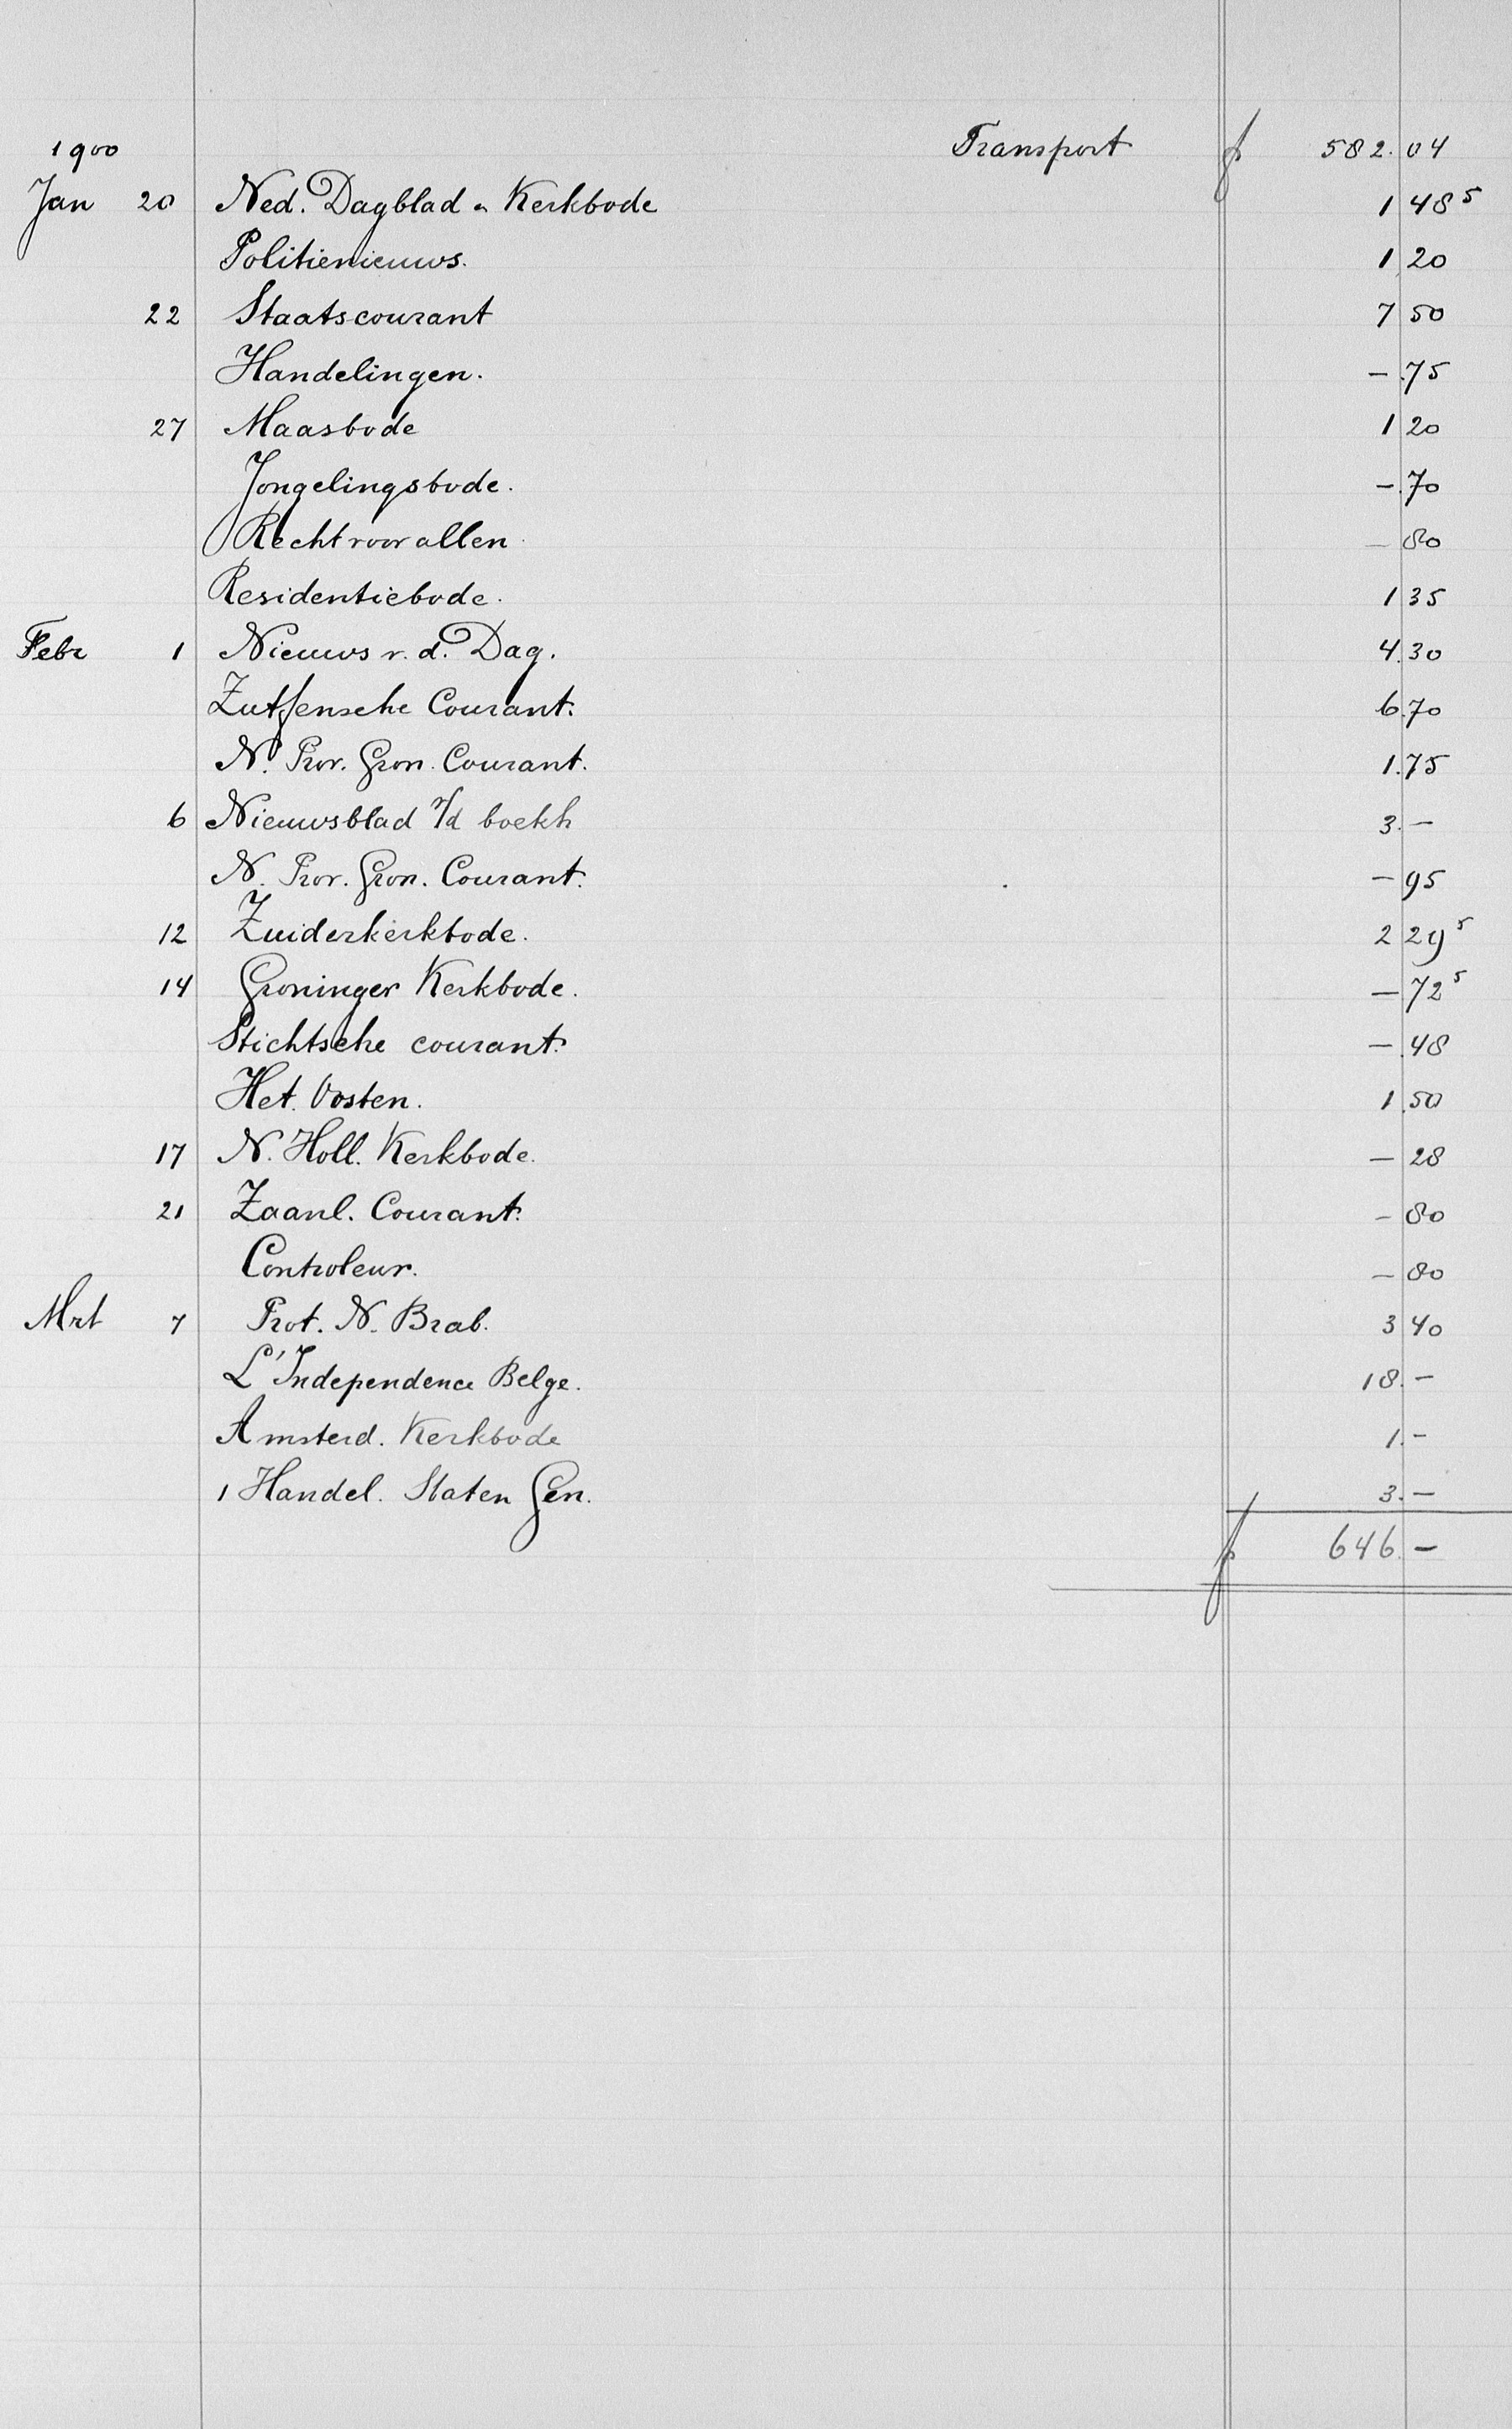 1900 Transport f 582.04
Jan 20 Ned. Dagblad en Kerkbode 1 48⁵
Politienieuws. 1 20
22 Staatscourant 7 50
Handelingen. - .75
27 Maasbode 1 20
Jongelingsbode. - .70
Recht voor allen - 80
Residentiebode. 1 35
Febr 1 Nieuws v. d. Dag. 4.30
Zutfensche Courant. 6.70
N. Prov. Gron. Courant. 1.75
6 Nieuwsblad v/d boekh 3. -
N. Prov. Gron. Courant. - 95
12 Zuiderkerkbode. 2 29⁵
14 Groninger Kerkbode. - 72⁵
Stichtsche courant. - .48
Het Oosten. 1.50
17 N. Holl. Kerkbode. - 28
21 Zaanl. Courant. - 80
Controleur. - 80
Mrt 7 Prot. N. Brab. 3 40
L'Independence Belge. 18. -
Amsterd. Kerkbode 1. -
1 Handel. Staten Gen. 3. -
f 646. -